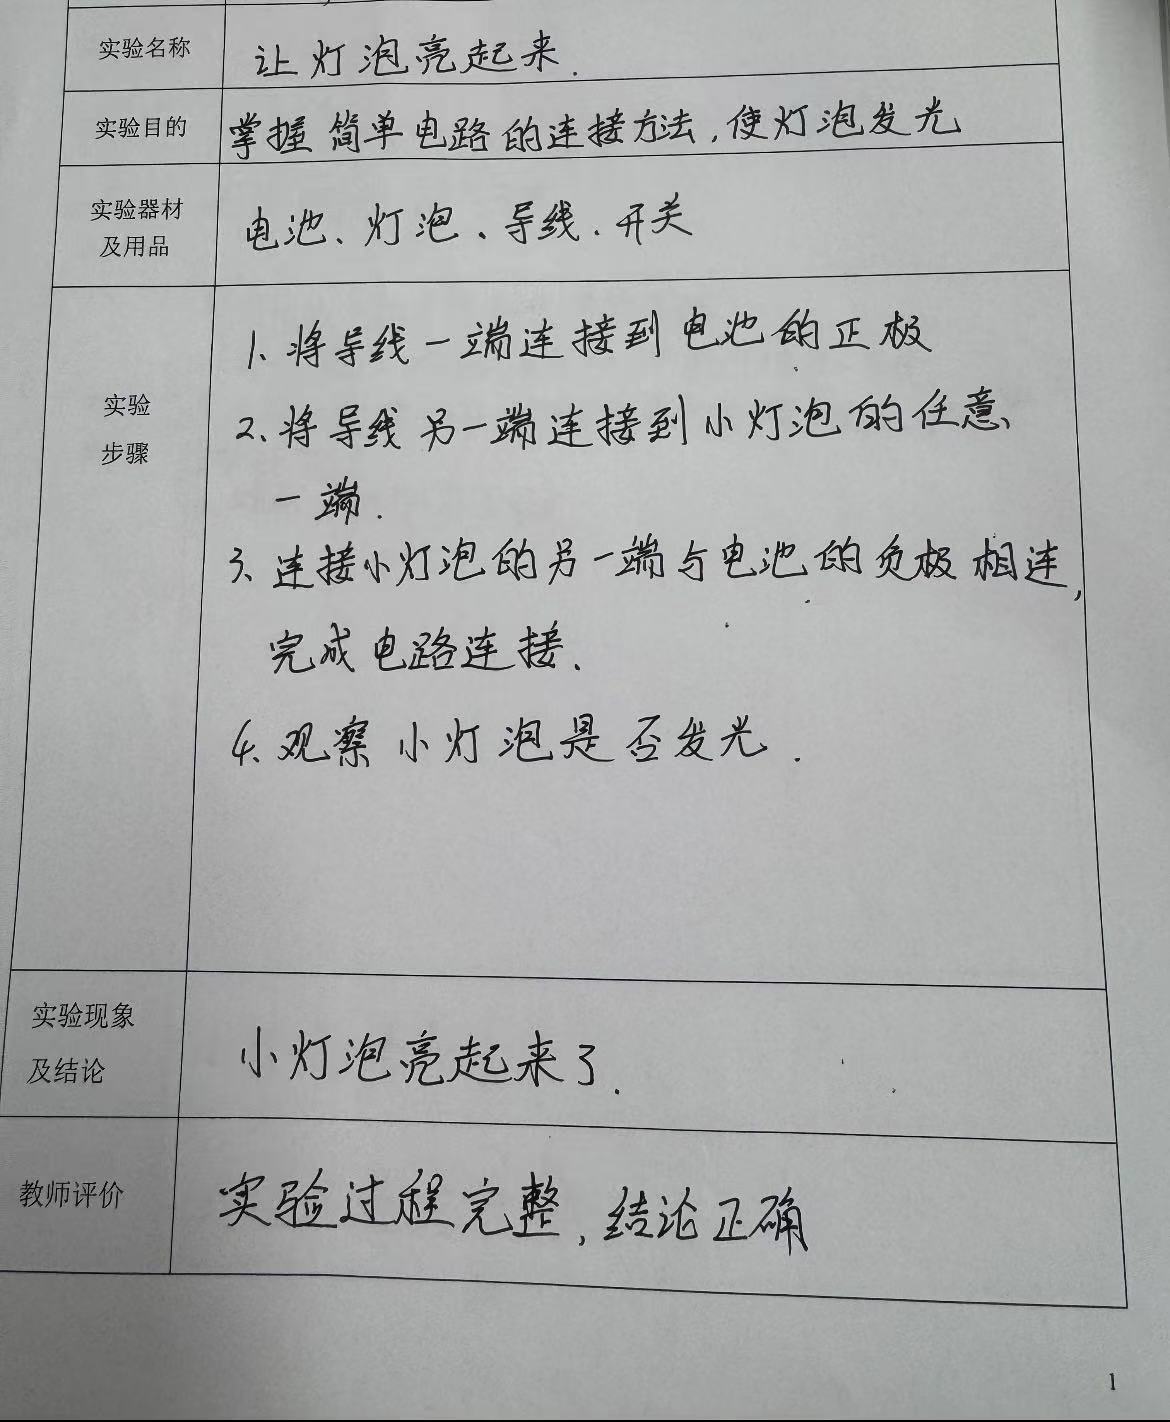 实验名称
让灯泡亮起来.
实验目的
掌握简单电路的连接方法,使灯泡发光
实验器材
及用品
电池、灯泡、导线、开关
实验
步骤
1、将导线一端连接到电池的正极
2、将导线另一端连接到小灯泡的任意
一端.
3、连接小灯泡的另一端与电池的负极相连,
完成电路连接.
4、观察小灯泡是否发光.
实验现象
及结论
小灯泡亮起来了.
教师评价
实验过程完整,结论正确
1